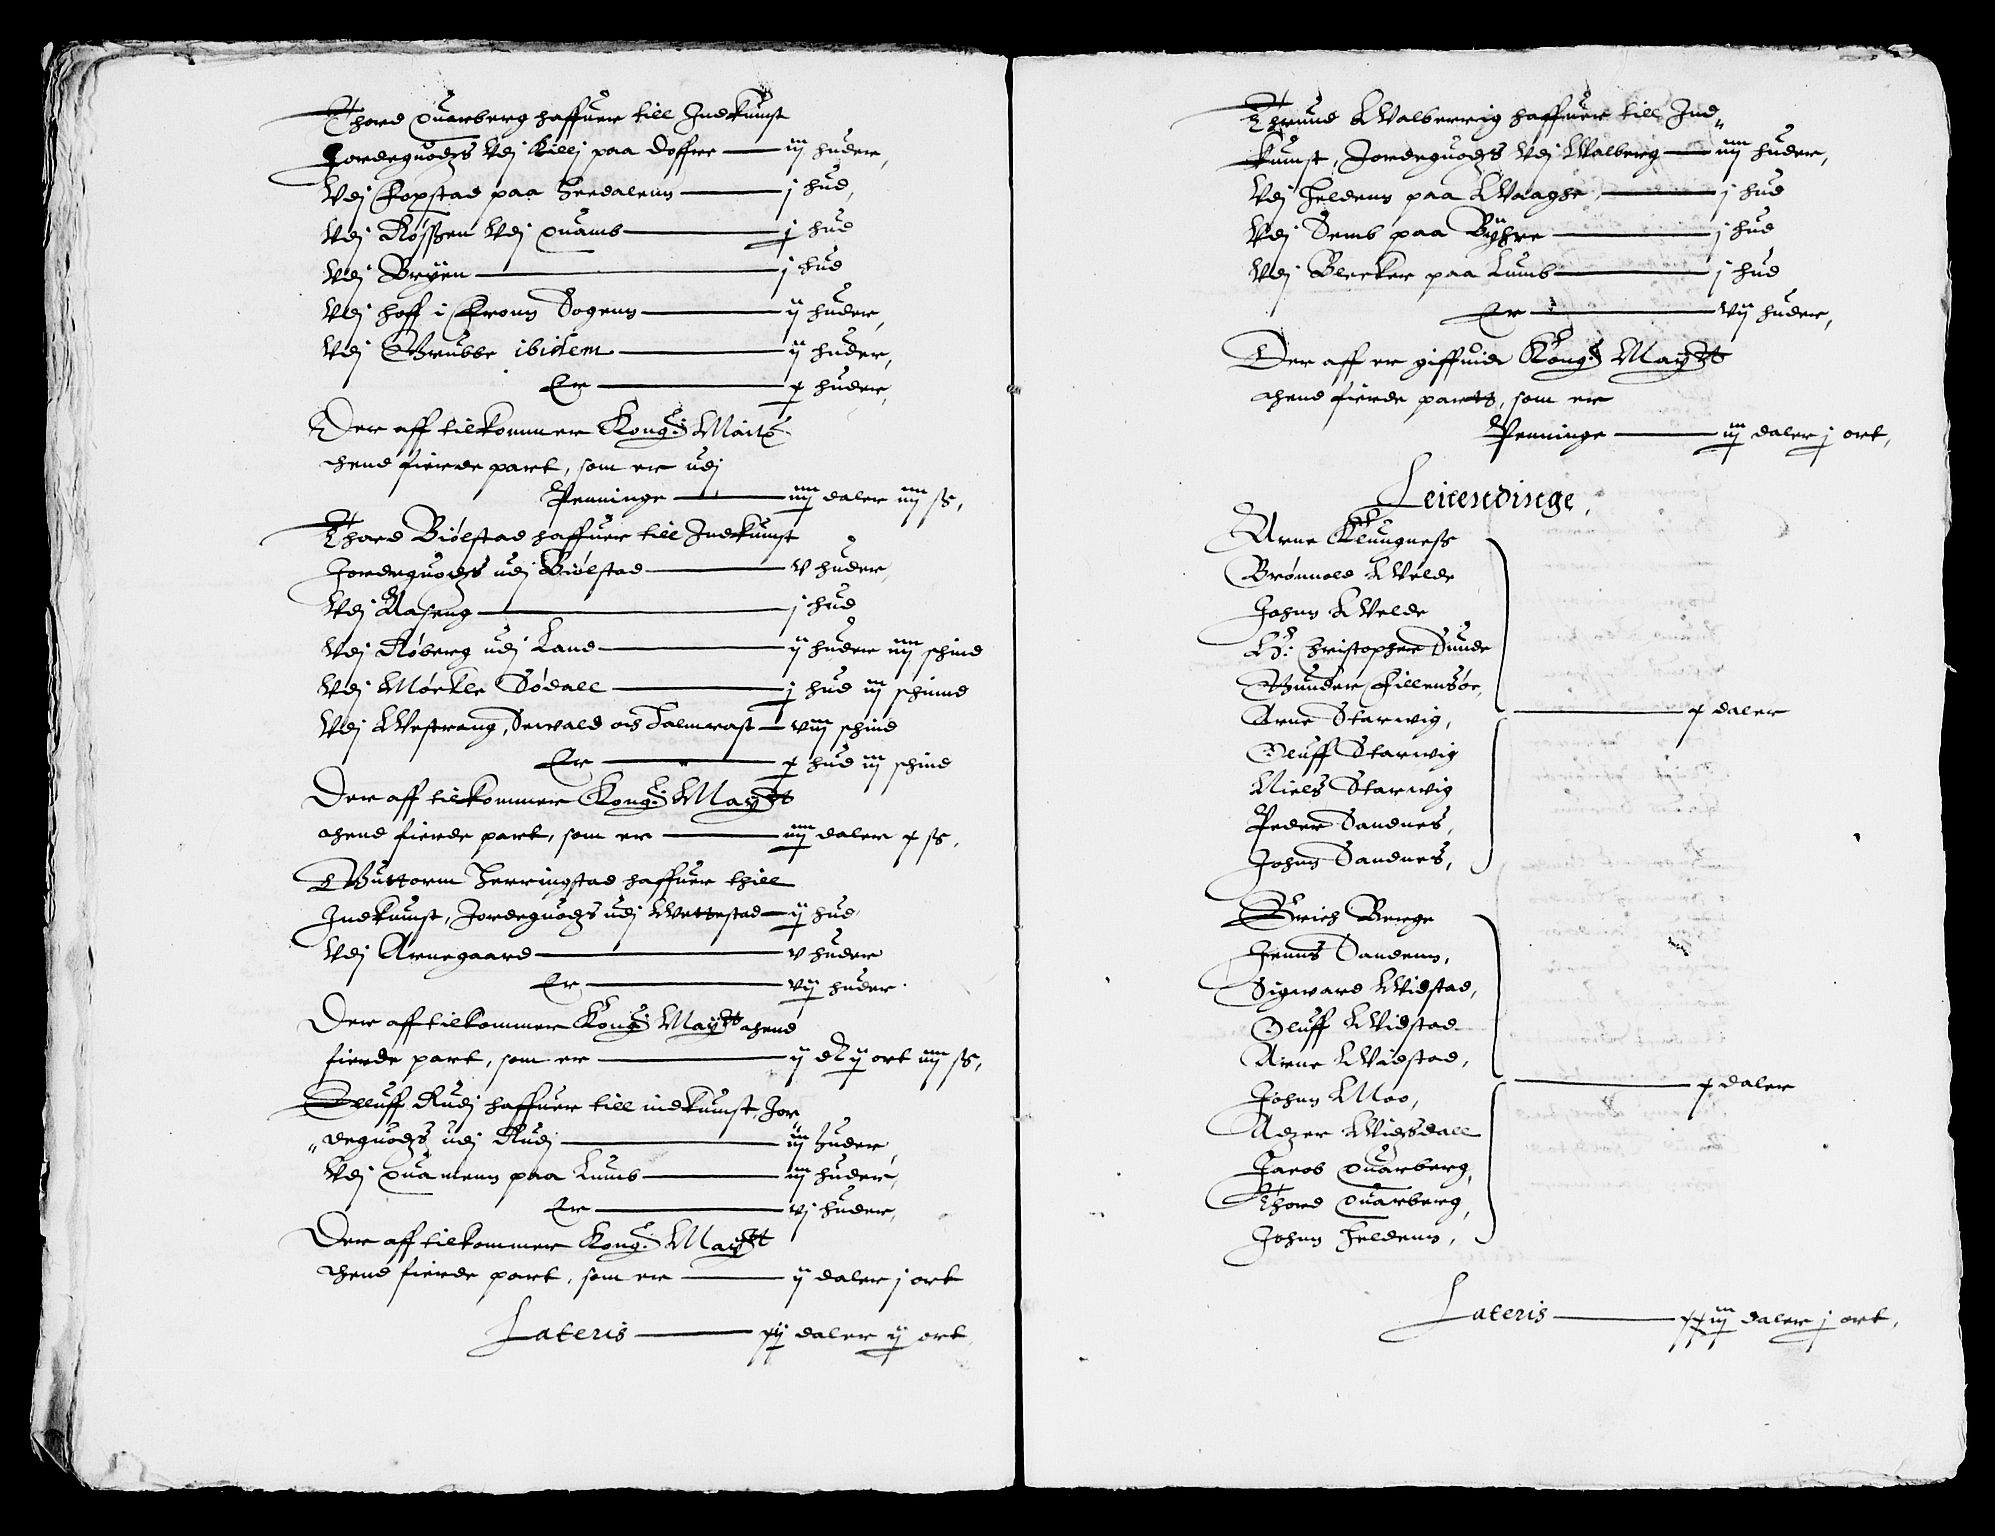 Thord Quarberg haffuer till Indkumst
Jordeguodtz Vdj Killj paa Doffre — iij huder,
Vdj Fopstad paa Heedalenn — j hud,
Vdj Røjszen Vdj Quamb — j hud
Vdj Bryen — j hud
Vdj hoff i Frons Sogenn — ij huder,
Vdj Grubbe ibidem — ij huder,
Er — x huder,
Der aff tilkommer Kong: Maitz
thend fierde part, som er udj
Penninge — iiij daler iiij ss,
Thord Biølstad haffuer till Indkumst
Jordeguodzs udj Biølstad — v huder,
Vdj Aaseng — j hud
Vdj Røberg udj Land — ij huder iiij schind
Vdj Mørkle Sødall — j hud iij schinnd
Vdj Westreng, Sewald och Talmrast — viij schind
Er — x hud iij schind
Der aff tilkommer Kong: Maytt
thend fierde part, som er — iiij daler x ss,
Guttorm Herringstad haffuer thill
Indkumst, Jordeguodzs udj Wettestad — ij hud
Vdj Arnegaard — v huder
Er — vij huder
Der aff tilkommer Kong: Maytt thend
fierde part, som er — ij dl ij ort iiij ss,
Olluff Rudj haffuer till indkumst, Jor„
„deguodzs udj Rudj — iij huder,
Vdj Quamenn paa Lumb — iij huder,
Er — vj huder,
Der aff tilkommer Kong: Maytt
thend fierde part, som er — ij daler j ort
Lateris — xij daler ij ort,
Thrund Walberrig haffuer till Ind„
kumst, Jordeguodzs Vdj Walberg — iiij huder,
Vdj Heldenn paa Waaghe — j hud
Vdj Semb paa Byhre — j hud
Vdj Blecker paa Lumb — j hud
Er — vij huder,
Der aff er giffuid Kong: Maytt
thend fierde parts, som er
Penninge — iij daler j ort,
Leilendinge,
Arne Klungness
Brønnold Welde
Johnn Welde
H: Christopher Sunde
Gunder Fillensøe,
Arne Starwig,
Oluff Starwig
Niels Starwig
Peder Sandnes,
Johnn Sandnes,
— x daler
Erich Berge
Jenns Sandenn,
Sigward Widstad,
Oluff Widstad
Arne Widstad,
Johnn Moo,
Adzer Widzsdall
Jacob Quarberg,
Thord Quarberg,
Johnn Heldenn,
— x daler
Lateris — xxiij daler j ort,